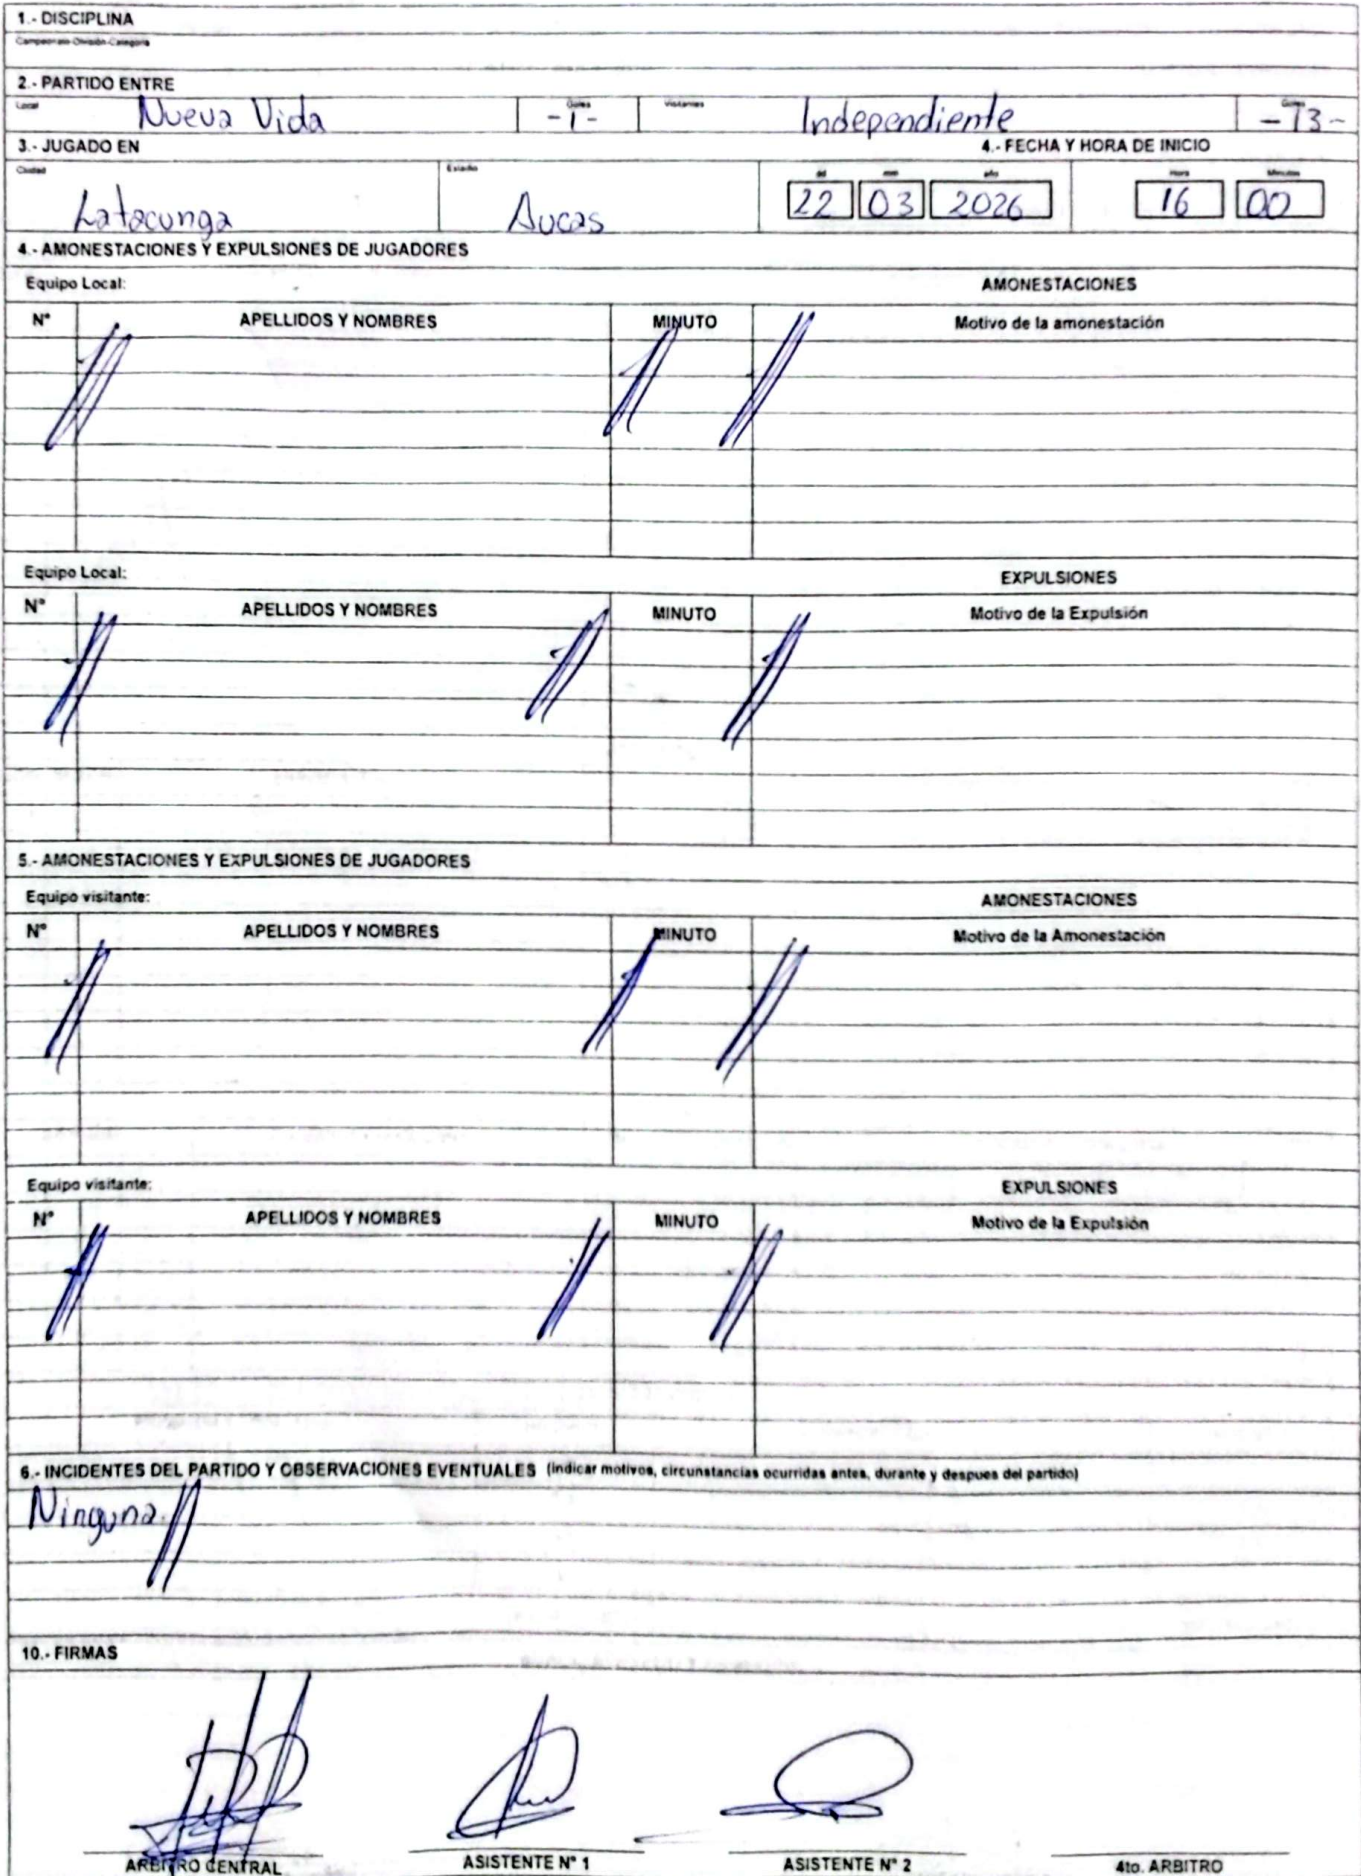 1.- DISCIPLINA
Campeonato-División-Categoría
2.- PARTIDO ENTRE
Local Nueva Vida Goles -1- Visitantes Independiente Goles -13-
3.- JUGADO EN 4.- FECHA Y HORA DE INICIO
Ciudad Estadio dd mm año Hora Minutos
Latacunga Aucas 22 03 2026 16 00
4.- AMONESTACIONES Y EXPULSIONES DE JUGADORES
Equipo Local: AMONESTACIONES
N° APELLIDOS Y NOMBRES MINUTO Motivo de la amonestación
Equipo Local: EXPULSIONES
N° APELLIDOS Y NOMBRES MINUTO Motivo de la Expulsión
5.- AMONESTACIONES Y EXPULSIONES DE JUGADORES
Equipo visitante: AMONESTACIONES
N° APELLIDOS Y NOMBRES MINUTO Motivo de la Amonestación
Equipo visitante: EXPULSIONES
N° APELLIDOS Y NOMBRES MINUTO Motivo de la Expulsión
6.- INCIDENTES DEL PARTIDO Y OBSERVACIONES EVENTUALES (indicar motivos, circunstancias ocurridas antes, durante y despues del partido)
Ninguna
10.- FIRMAS
ARBITRO CENTRAL ASISTENTE N° 1 ASISTENTE N° 2 4to. ARBITRO